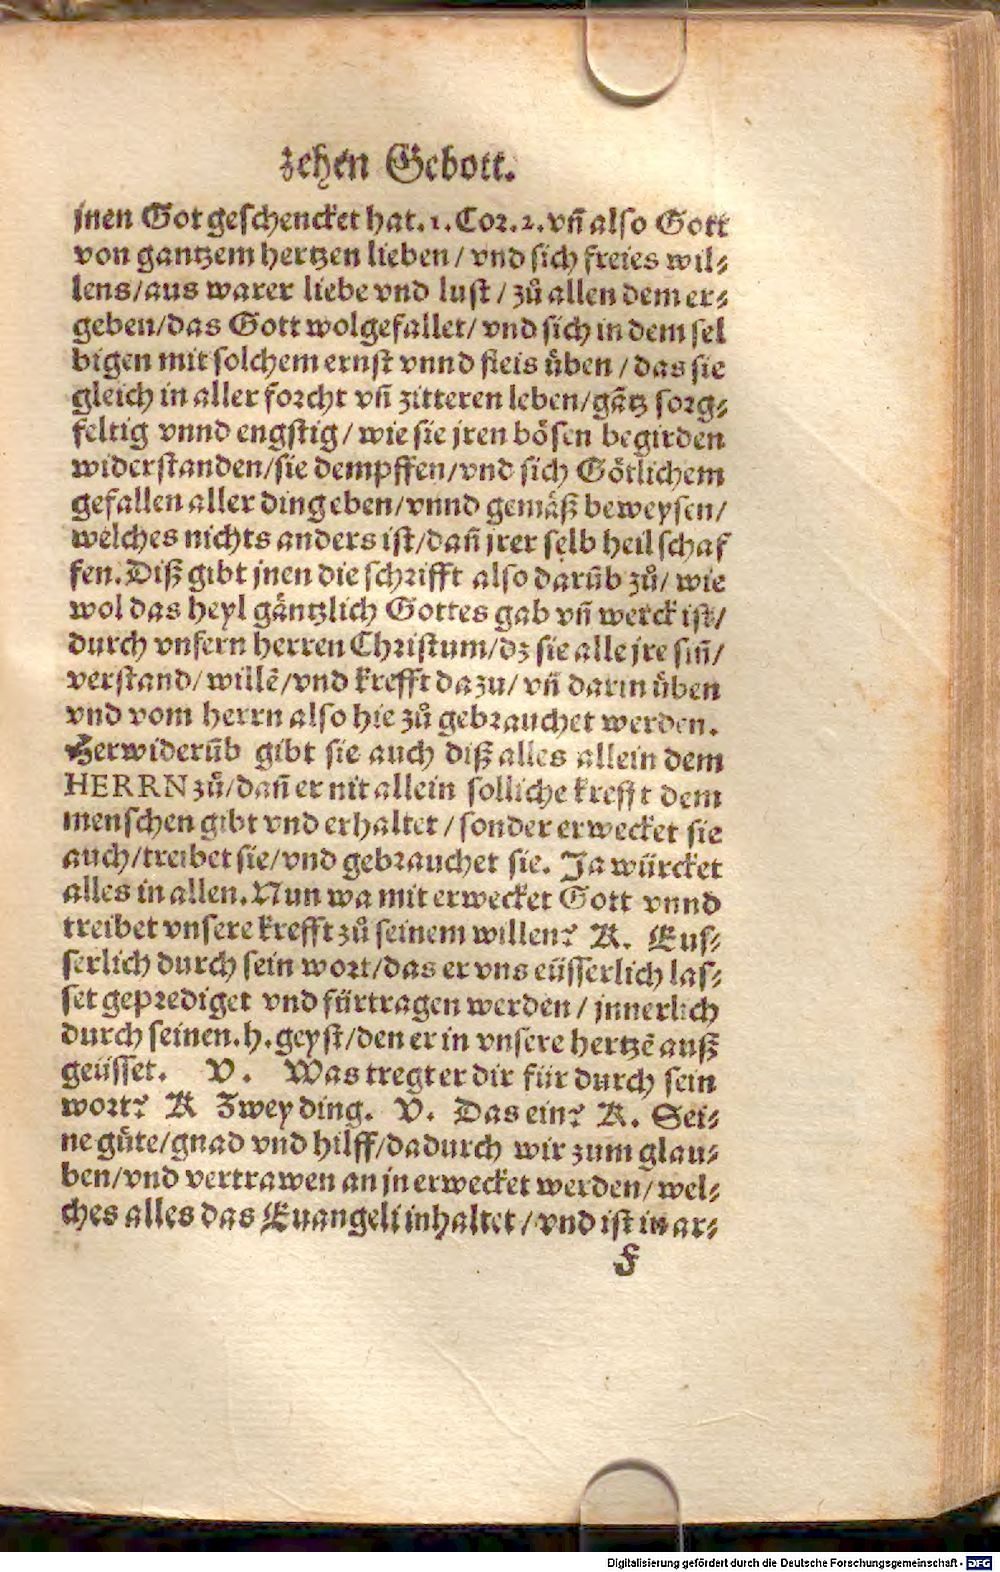 zehen Gebott.
jnen Got geschencket hat. 1. Cor. 2. vñ also Gott
von gantzem hertzen lieben / vnd sich freies wil⸗
lens/aus warer liebe vnd lust / zů allen dem er⸗
geben/das Gott wolgefallet/ vnd sich in dem sel
bigen mit solchem ernst vnnd fleis üben / das sie
gleich in aller forcht vñ zitteren leben/gãtz sorg⸗
feltig vnnd engstig/ wie sie jren bösen begirden
widerstanden/sie dempffen/vnd sich Götlichem
gefallen aller ding eben/vnnd gemäß beweysen/
welches nichts anders ist/dañ jrer selb heil schaf
fen. Diß gibt jnen die schrifft also darũb zů/ wie
wol das heyl gäntzlich Gottes gab vñ werck ist/
durch vnsern herren Christum/dz sie alle jre siñ/
verstand/ willẽ/vnd krefft dazu/ vñ darin üben
vnd vom herrn also hie zů gebrauchet werden.
Herwiderũb gibt sie auch diß alles allein dem
HERRN zů/dañ er nit allein solliche krefft dem
menschen gibt vnd erhaltet / sonder erwecket sie
auch/treibet sie/vnd gebrauchet sie. Ja würcket
alles in allen. Nun wa mit erwecket Gott vnnd
treibet vnsere krefft zů seinem willen? K. Eus⸗
serlich durch sein wort/das er vns eüsserlich las⸗
set geprediget vnd fürtragen werden / jnnerlich
durch seinen. h. geyst/den er in vnsere hertzẽ auß
geüsset. V. Was tregt er dir für durch sein
wort? K Zwey ding. V. Das ein? K. Sei⸗
ne güte/gnad vnd hilff/dadurch wir zum glau⸗
ben/vnd vertrawen an jn erwecket werden/ wel⸗
ches alles das Euangeli inhaltet / vnd ist in ar⸗
F
Digitalisierung gefördert durch die Deutsche Forschungsgemeinschaft - DFG